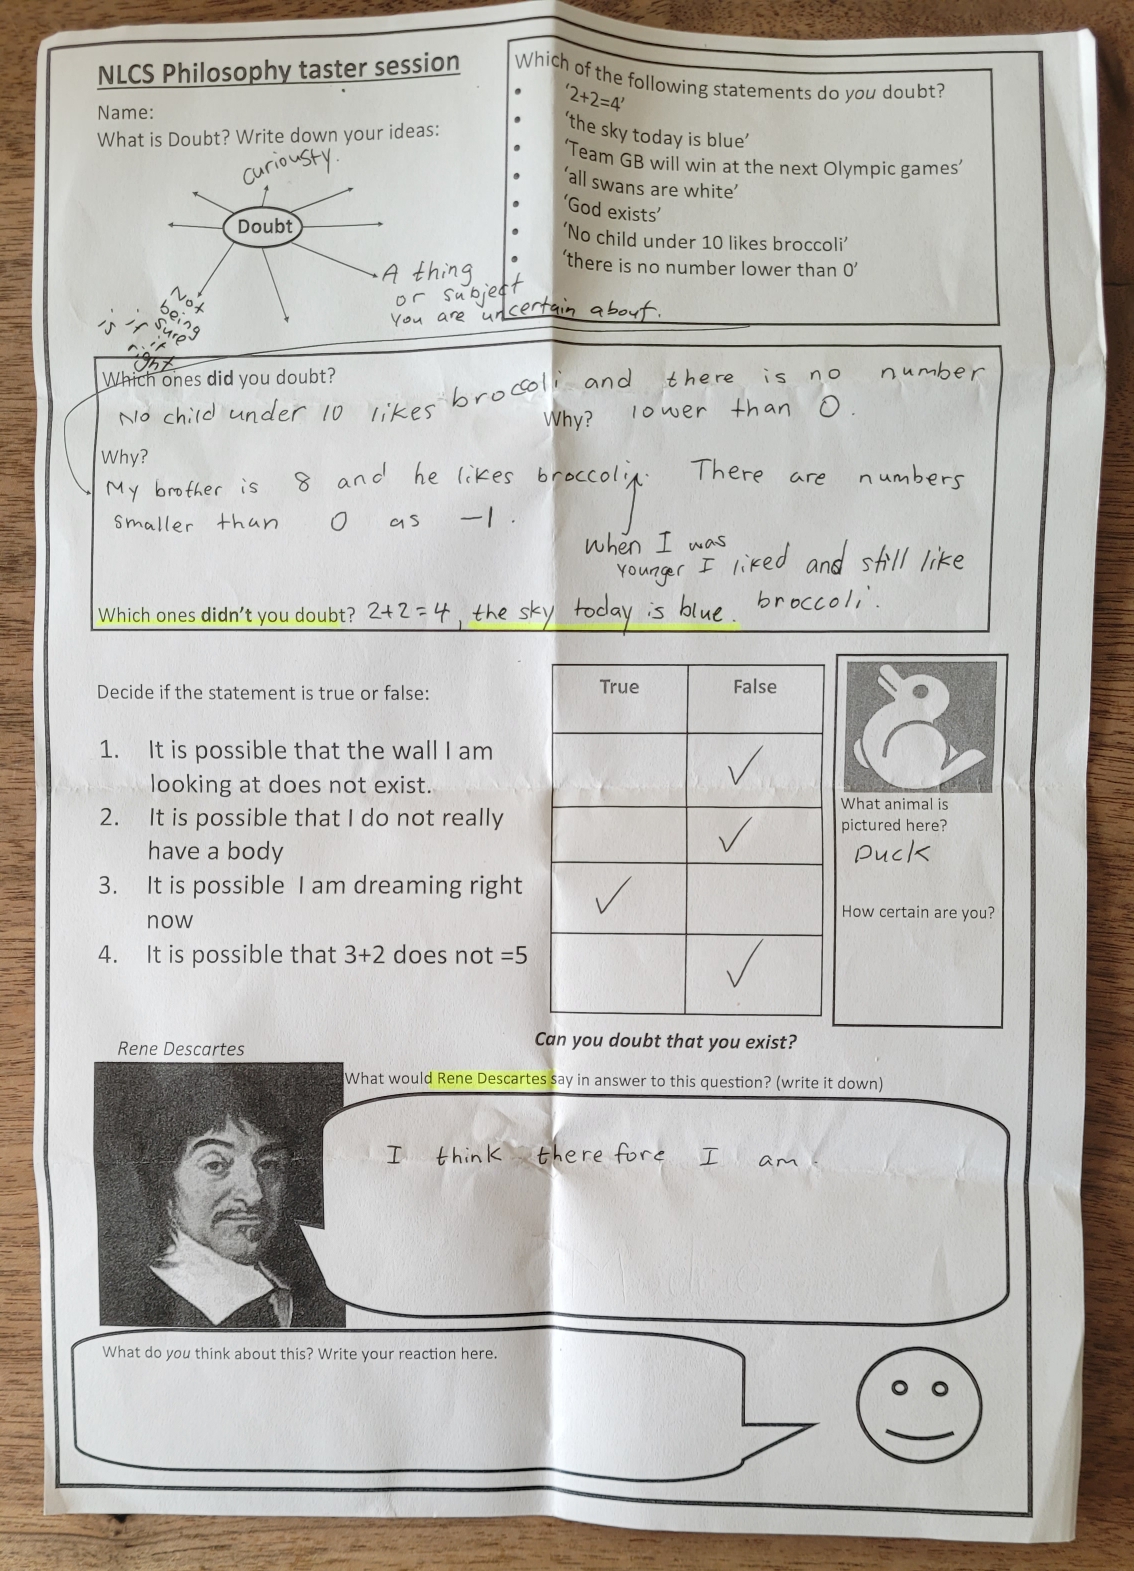 NLCS Philosophy taster session
Name:
What is Doubt? Write down your ideas:
curiousty.
Doubt
A thing
or subject
you are uncertain about.
Not
being
sure
is it
right
Which of the following statements do you doubt?
• '2+2=4'
• 'the sky today is blue'
• 'Team GB will win at the next Olympic games'
• 'all swans are white'
• 'God exists'
• 'No child under 10 likes broccoli'
• 'there is no number lower than 0'
Which ones did you doubt?
No child under 10 likes broccoli and there is no number
Why? lower than 0.
Why?
My brother is 8 and he likes broccoli. There are numbers
smaller than 0 as -1.
when I was
younger I liked and still like
broccoli.
Which ones didn't you doubt? 2+2=4, the sky today is blue.
Decide if the statement is true or false:
True False
1. It is possible that the wall I am
looking at does not exist.
2. It is possible that I do not really
have a body
3. It is possible I am dreaming right
now
4. It is possible that 3+2 does not =5
What animal is
pictured here?
Duck
How certain are you?
Rene Descartes
Can you doubt that you exist?
What would Rene Descartes say in answer to this question? (write it down)
I think therefore I am.
What do you think about this? Write your reaction here.